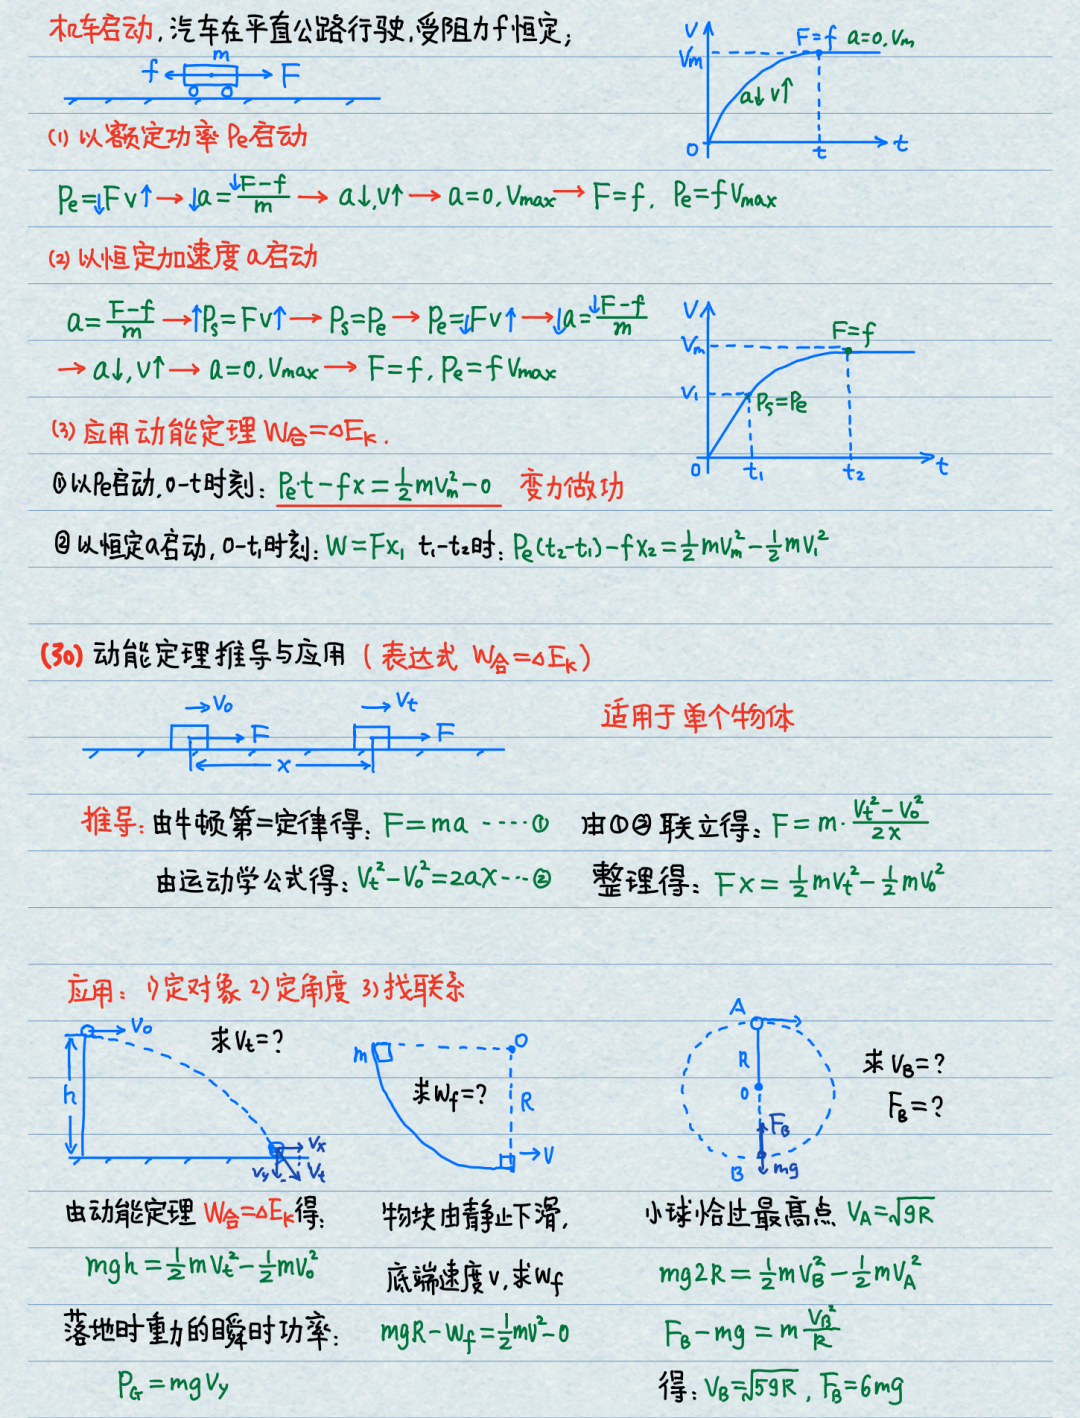 机车启动,汽车在平直公路行驶,受阻力f恒定;
m
f F
V Vm F=f a=0.Vm
a↓ v↑
0 t t
(1) 以额定功率Pe启动
Pe=↓Fv↑→↓a=↓F-f/m→a↓,v↑→a=0,Vmax→F=f. Pe=fVmax
(2) 以恒定加速度a启动
a=F-f/m→↑Ps=Fv↑→Ps=Pe→Pe=↓Fv↑→↓a=↓F-f/m
→a↓,v↑→a=0.Vmax→F=f,Pe=fVmax
V Vm F=f
V₁ Ps=Pe
0 t₁ t₂ t
(3) 应用动能定理W合=△Ek.
①以Pe启动,0-t时刻: Pe·t-fx=½mVm²-0 变力做功
②以恒定a启动,0-t₁时刻: W=Fx₁ t₁-t₂时: Pe(t₂-t₁)-fx₂=½mVm²-½mV₁²
(30) 动能定理推导与应用(表达式 W合=△Ek)
V₀ Vt
F F
x
适用于单个物体
推导:由牛顿第二定律得: F=ma ----① 由①②联立得: F=m·Vt²-V₀²/2x
由运动学公式得: Vt²-V₀²=2ax---② 整理得: Fx=½mVt²-½mV₀²
应用: 1)定对象 2)定角度 3)找联系
V₀ 求Vt=?
h
Vx
Vy Vt
m O
求Wf=? R
V
A
R
O
FB
B mg
求VB=?
FB=?
由动能定理W合=△Ek得:
mgh=½mVt²-½mV₀²
落地时重力的瞬时功率:
PG=mgVy
物块由静止下滑,
底端速度v,求Wf
mgR-Wf=½mv²-0
小球恰过最高点 VA=√gR
mg2R=½mVB²-½mVA²
FB-mg=mVB²/R
得: VB=√5gR, FB=6mg